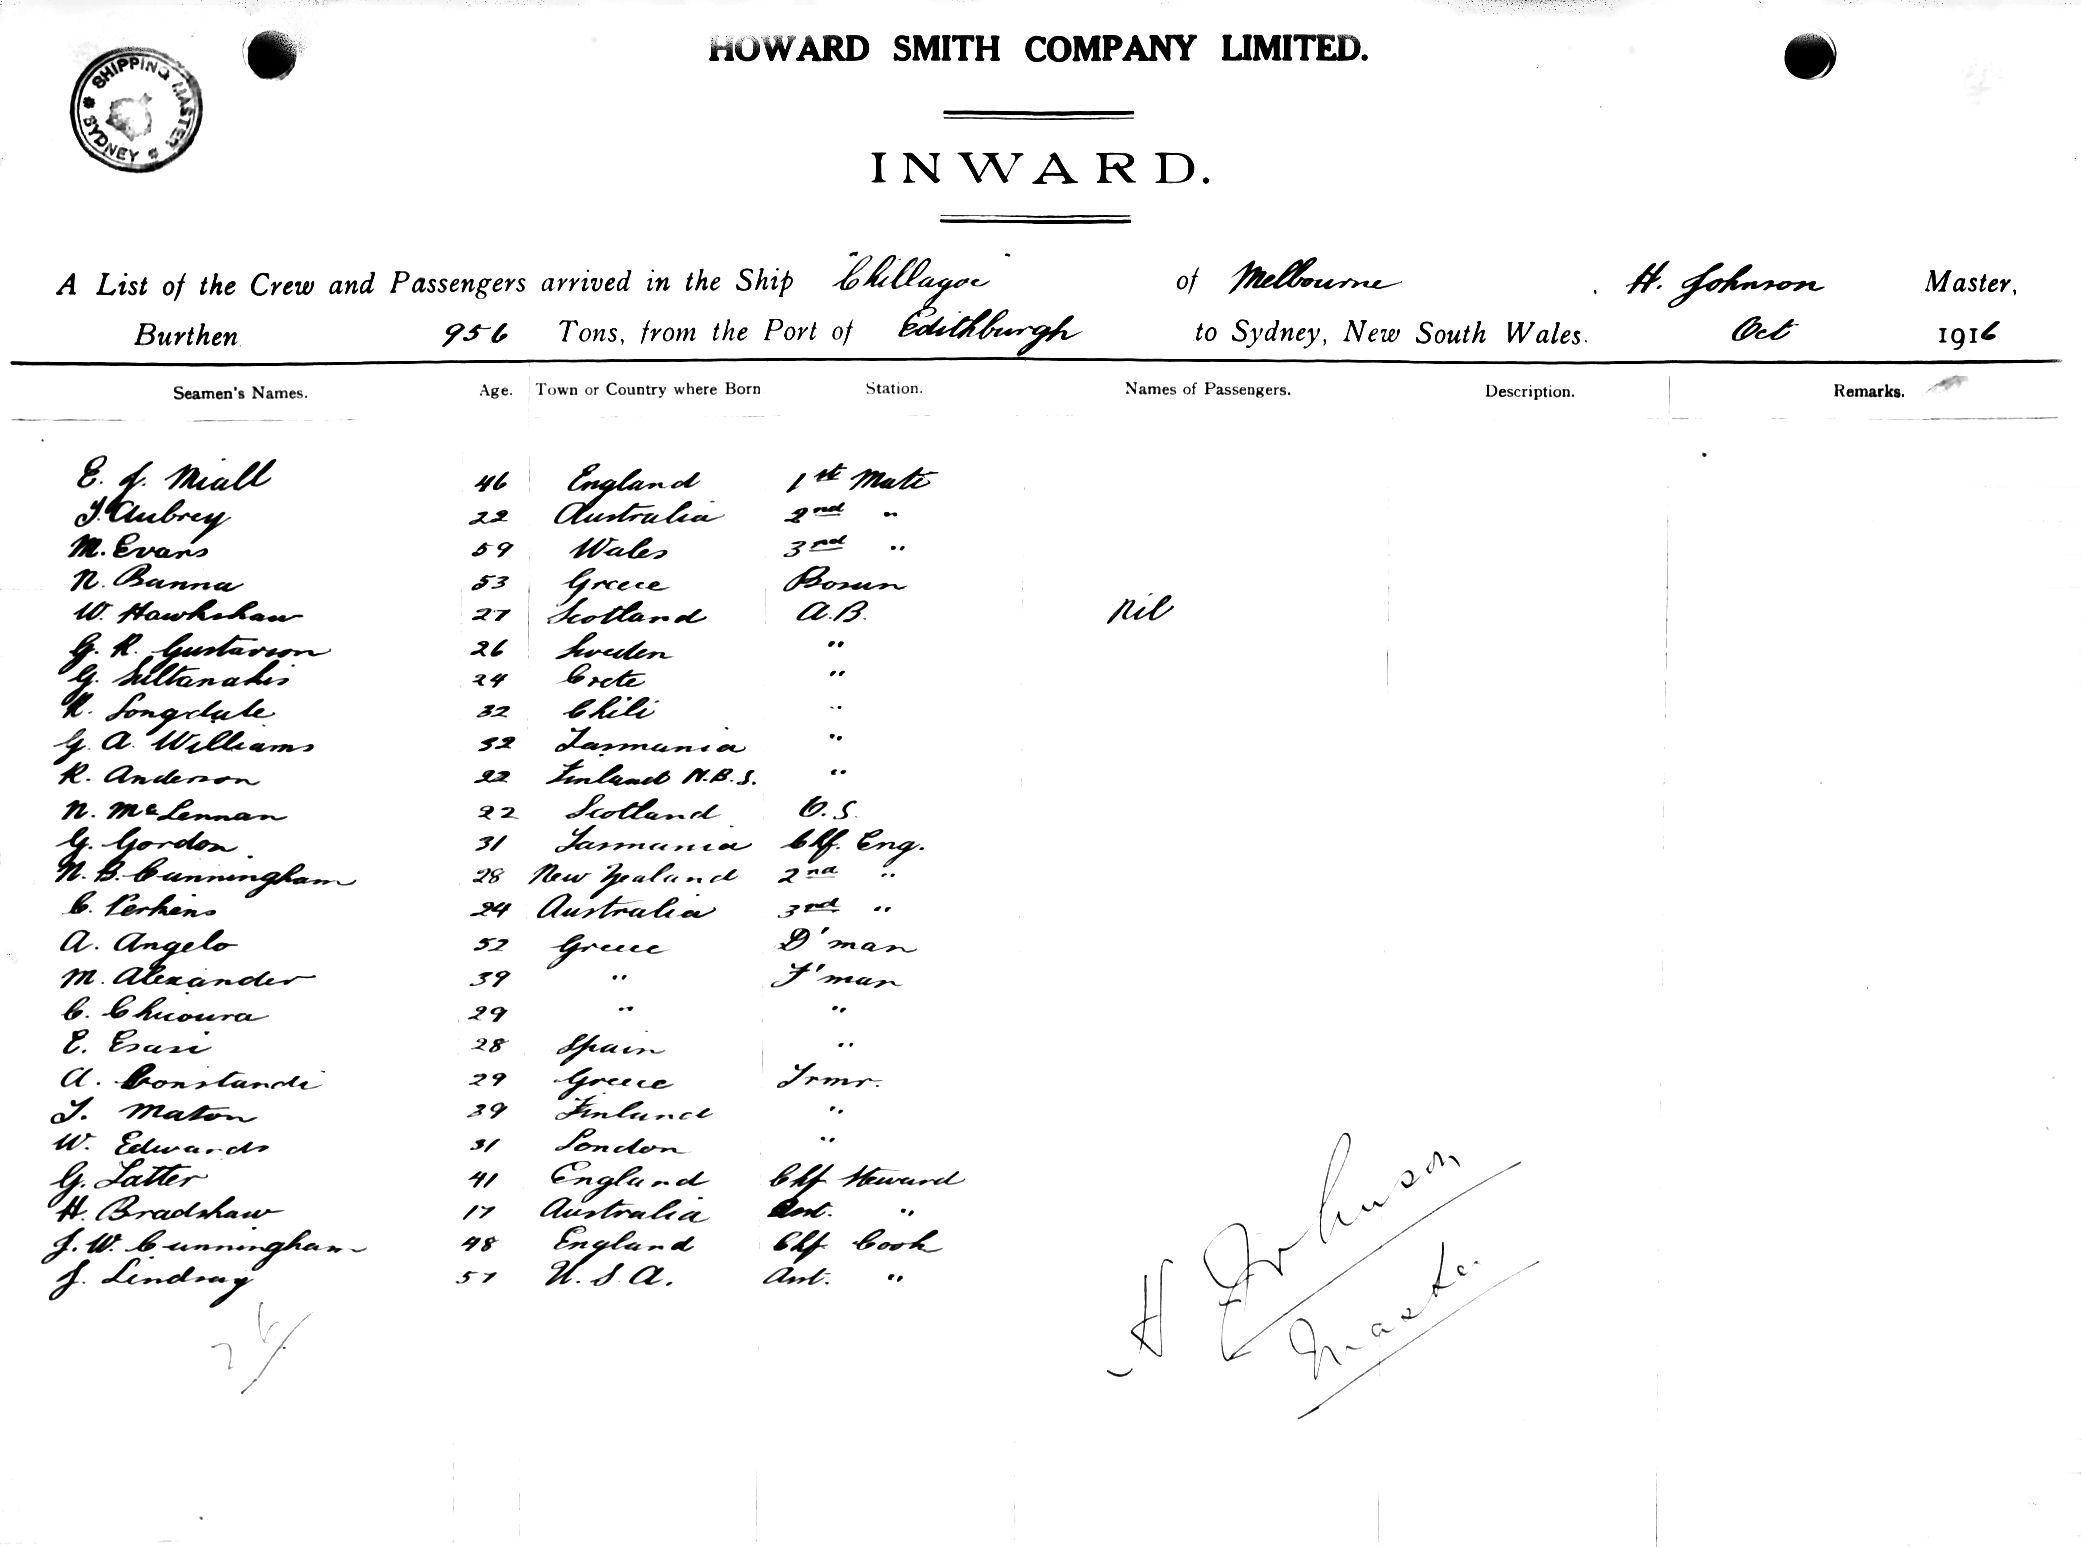 HOWARD SMITH COMPANY LIMITED.
SHIPPING MASTER * SYDNEY *
INWARD.
A List of the Crew and Passengers arrived in the Ship "Chillagoe" of Melbourne . H. Johnson Master,
Burthen 956 Tons, from the Port of Edithburgh to Sydney, New South Wales. Oct 1916
Seamen's Names. Age. Town or Country where Born Station. Names of Passengers. Description. Remarks.
E. J. Miall 46 England 1st Mate
T. Aubrey 22 Australia 2nd "
M. Evans 59 Wales 3nd "
N. Banna 53 Greece Bosun
W. Hawkshaw 27 Scotland A.B. Nil
G. R. Gustavson 26 Sweden "
G. Sultanakis 24 Crete "
R. Longdale 32 Chili "
G. A. Williams 32 Tasmania "
R. Anderson 22 Finland N.B.S. "
N. McLennan 22 Scotland O.S.
G. Gordon 31 Tasmania Chf. Eng.
N. B. Cunningham 28 New Zealand 2nd "
C. Perkins 24 Australia 3rd "
A. Angelo 52 Greece D'man
M. Alexander 39 " F'man
C. 29 " "
E. 28 Spain "
A. Constandi 29 Greece Trmr.
T. Maton 39 Finland "
W. Edwards 31 London "
G. Latter 41 England Chf Steward
H. Bradshaw 17 Australia Ast. "
J. W. Cunningham 48 England Chf Cook
J. Lindsay 57 U.S.A. Ast. "
26
H Johnson
Master